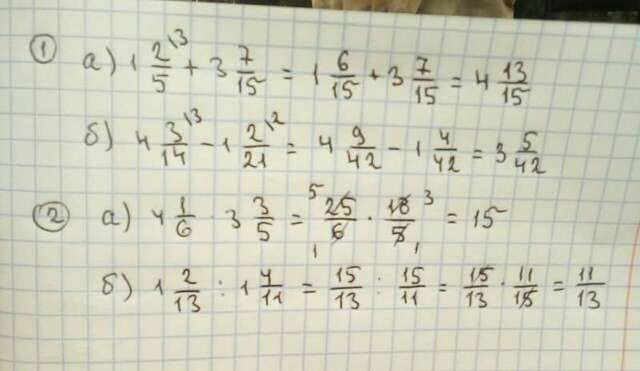 ① а) 1 2/5 \3 + 3 7/15 = 1 6/15 + 3 7/15 = 4 13/15
б) 4 3/14 \3 - 1 2/21 \2 = 4 9/42 - 1 4/42 = 3 5/42
② а) 4 1/6 · 3 3/5 = 5 25/6 1 · 18/5 3 1 = 15
б) 1 2/13 : 1 4/11 = 15/13 : 15/11 = 15/13 · 11/15 = 11/13